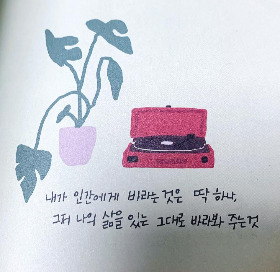 내가 인간에게 바라는 것은 딱 하나,
그저 나의 삶을 있는 그대로 바라봐 주는 것